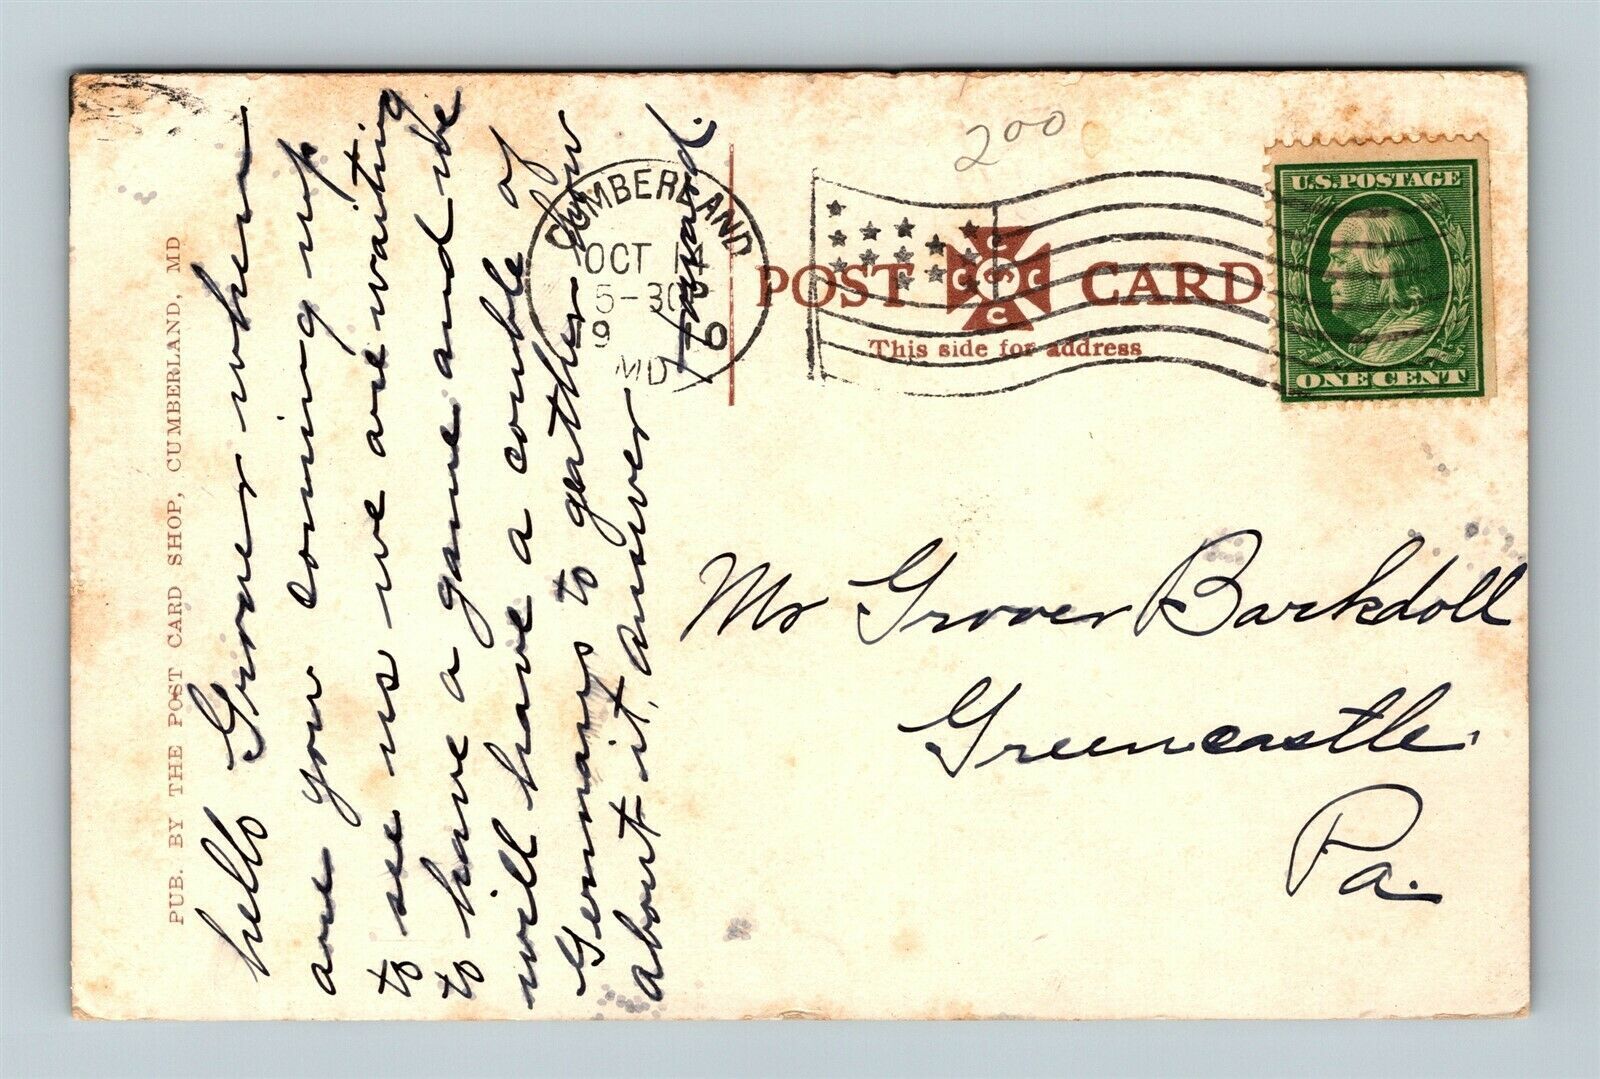 PUB. BY THE POST CARD SHOP, CUMBERLAND, MD
hello Grover when
are you coming up
to see us we are waiting
to have a game and we
will have a couple of
Germans to gather how
about it, answer
Howard.
CUMBERLAND
OCT 1
5-30P
9
MD
200
POST CARD
C C C C
This side for address
U.S. POSTAGE
ONE CENT
Mr Grover Barkdoll
Greencastle
Pa.